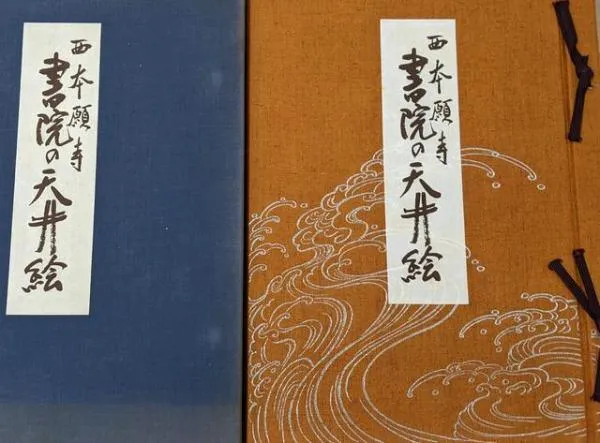 西本願寺
書院の天井絵
西本願寺
書院の天井絵